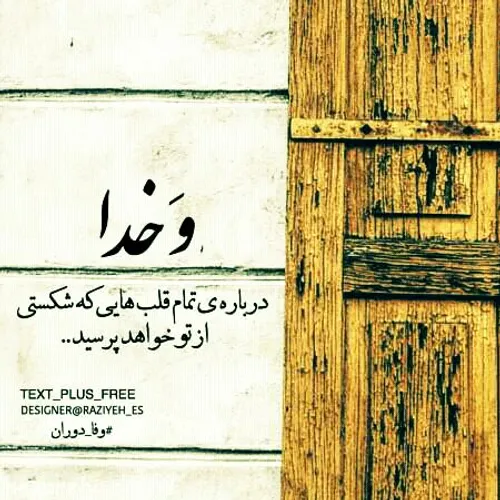 وَ خدا
درباره‌ی تمام قلب‌هایی که شکستی
از تو خواهد پرسید..
TEXT_PLUS_FREE
DESIGNER@RAZIYEH_ES
#وفا_دوران